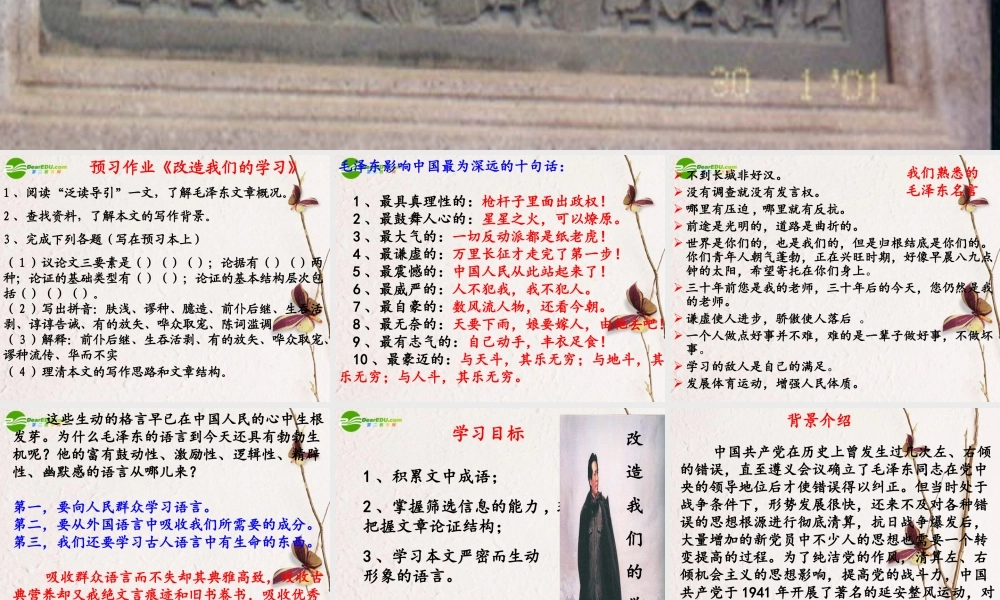 30 1 '01
DearEDU.com
预习作业《改造我们的学习》
1、阅读“泛读导引”一文，了解毛泽东文章概况。
2、查找资料，了解本文的写作背景。
3、完成下列各题（写在预习本上）
（1）议论文三要素是（）（）（）；论据有（）（）两
种；论证的基础类型有（）（）；论证的基本结构层次包
括（）（）（）。
（2）写出拼音：肤浅、谬种、臆造、前仆后继、生吞活
剥、谆谆告诫、有的放矢、哗众取宠、陈词滥调
（3）解释：前仆后继、生吞活剥、有的放矢、哗众取宠、
谬种流传、华而不实
（4）理清本文的写作思路和文章结构。
毛泽东影响中国最为深远的十句话：
1、最具真理性的：枪杆子里面出政权！
2、最鼓舞人心的：星星之火，可以燎原。
3、最大气的：一切反动派都是纸老虎！
4、最谦虚的：万里长征才走完了第一步！
5、最震憾的：中国人民从此站起来了！
6、最威严的：人不犯我，我不犯人。
7、最自豪的：数风流人物，还看今朝。
8、最无奈的：天要下雨，娘要嫁人，由他去吧！
9、最有志气的：自己动手，丰衣足食！
10、最豪迈的：与天斗，其乐无穷；与地斗，其
乐无穷；与人斗，其乐无穷。
我们熟悉的
毛泽东名言
不到长城非好汉。
没有调查就没有发言权。
哪里有压迫，哪里就有反抗。
前途是光明的，道路是曲折的。
世界是你们的，也是我们的，但是归根结底是你们的。
你们青年人朝气蓬勃，正在兴旺时期，好像早晨八九点
钟的太阳，希望寄托在你们身上。
三十年前您是我的老师，三十年后的今天，您仍然是我
的老师。
谦虚使人进步，骄傲使人落后 。
一个人做点好事并不难，难的是一辈子做好事，不做坏
事。
学习的敌人是自己的满足。
发展体育运动，增强人民体质。
DearEDU.com
这些生动的格言早已在中国人民的心中生根
发芽。为什么毛泽东的语言到今天还具有勃勃生
机呢？他的富有鼓动性、激励性、逻辑性、精辟
性、幽默感的语言从哪儿来？
第一，要向人民群众学习语言。
第二，要从外国语言中吸收我们所需要的成分。
第三，我们还要学习古人语言中有生命的东西。
吸收群众语言而不失却其典雅高致，吸收古
典营养却又戒绝文言痕迹和旧书卷书，吸收优秀
DearEDU.com
学习目标
1、积累文中成语；
2、掌握筛选信息的能力，
把握文章论证结构；
3、学习本文严密而生动
形象的语言。
改
造
我
们
的
背景介绍
中国共产党在历史上曾发生过几次左、右倾
的错误，直至遵义会议确立了毛泽东同志在党中
央的领导地位后才使错误得以纠正。但当时处于
战争条件下，形势发展很快，还来不及对各种错
误的思想根源进行彻底清算，抗日战争爆发后，
大量增加的新党员中不少人的思想也需要一个转
变提高的过程。为了纯洁党的作风，清算左、右
倾机会主义的思想影响，提高党的战斗力，中国
共产党于1941年开展了著名的延安整风运动，对